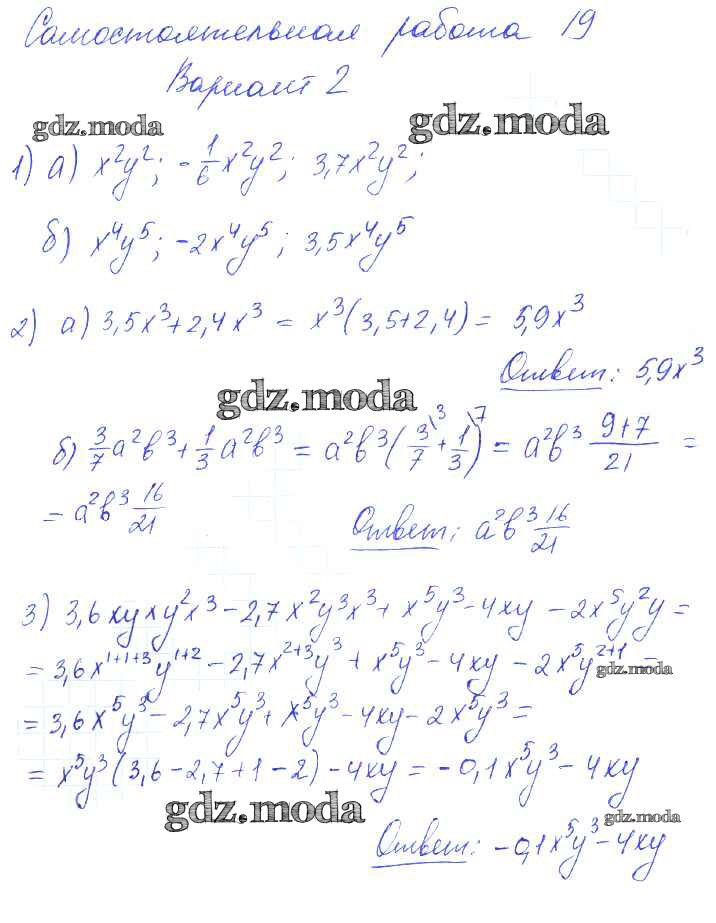 Самостоятельная работа 19
Вариант 2
gdz.moda gdz.moda
1) а) x²y²; -1/6x²y²; 3,7x²y²;
б) x⁴y⁵; -2x⁴y⁵; 3,5x⁴y⁵
2) а) 3,5x³+2,4x³ = x³(3,5+2,4) = 5,9x³
Ответ: 5,9x³
gdz.moda
б) 3/7a²b³+1/3a²b³ = a²b³(3/7\³+1/3\⁷) = a²b³ (9+7)/21 =
= a²b³ 16/21
Ответ: a²b³ 16/21
3) 3,6xyxy²x³ - 2,7x²y³x³ + x⁵y³ - 4xy - 2x⁵y²y =
= 3,6x¹⁺¹⁺³y¹⁺² - 2,7x²⁺³y³ + x⁵y³ - 4xy - 2x⁵y²⁺¹ =
gdz.moda
= 3,6x⁵y³ - 2,7x⁵y³ + x⁵y³ - 4xy - 2x⁵y³ =
= x⁵y³(3,6-2,7+1-2) - 4xy = -0,1x⁵y³ - 4xy
gdz.moda gdz.moda
Ответ: -0,1x⁵y³ - 4xy